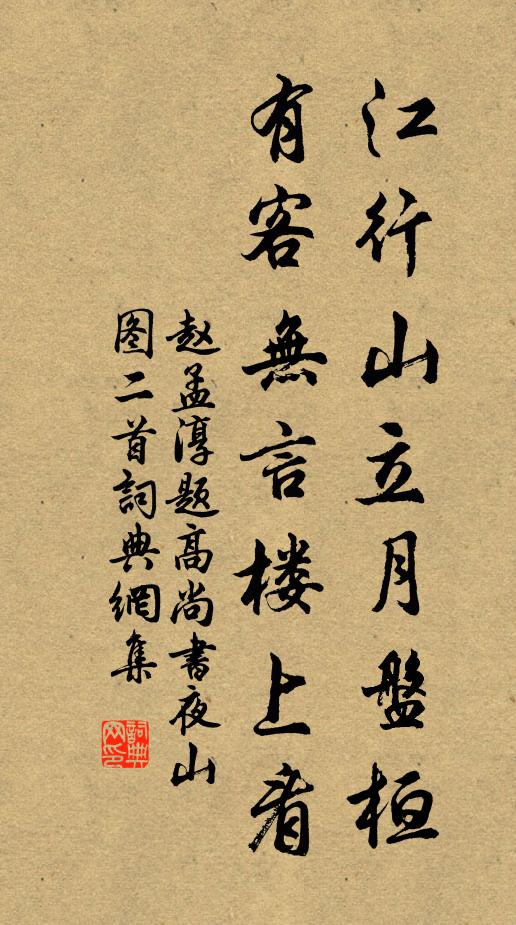 江行山立月盤桓
有客無言楼上看
赵孟淳题高尚書夜山
图二首詞典網集
詞典
网印